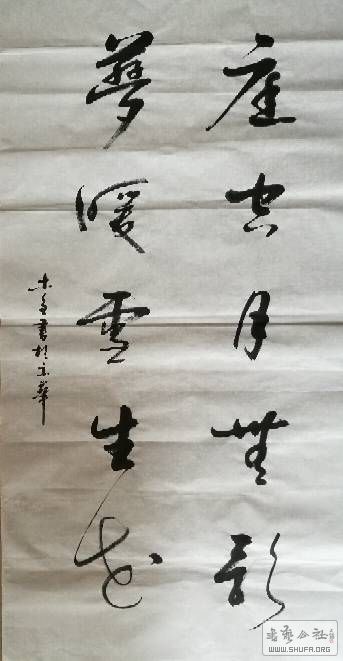 庭空月無影
夢暖雪生花
書於京華
書藝公社
WWW.SHUFA.ORG